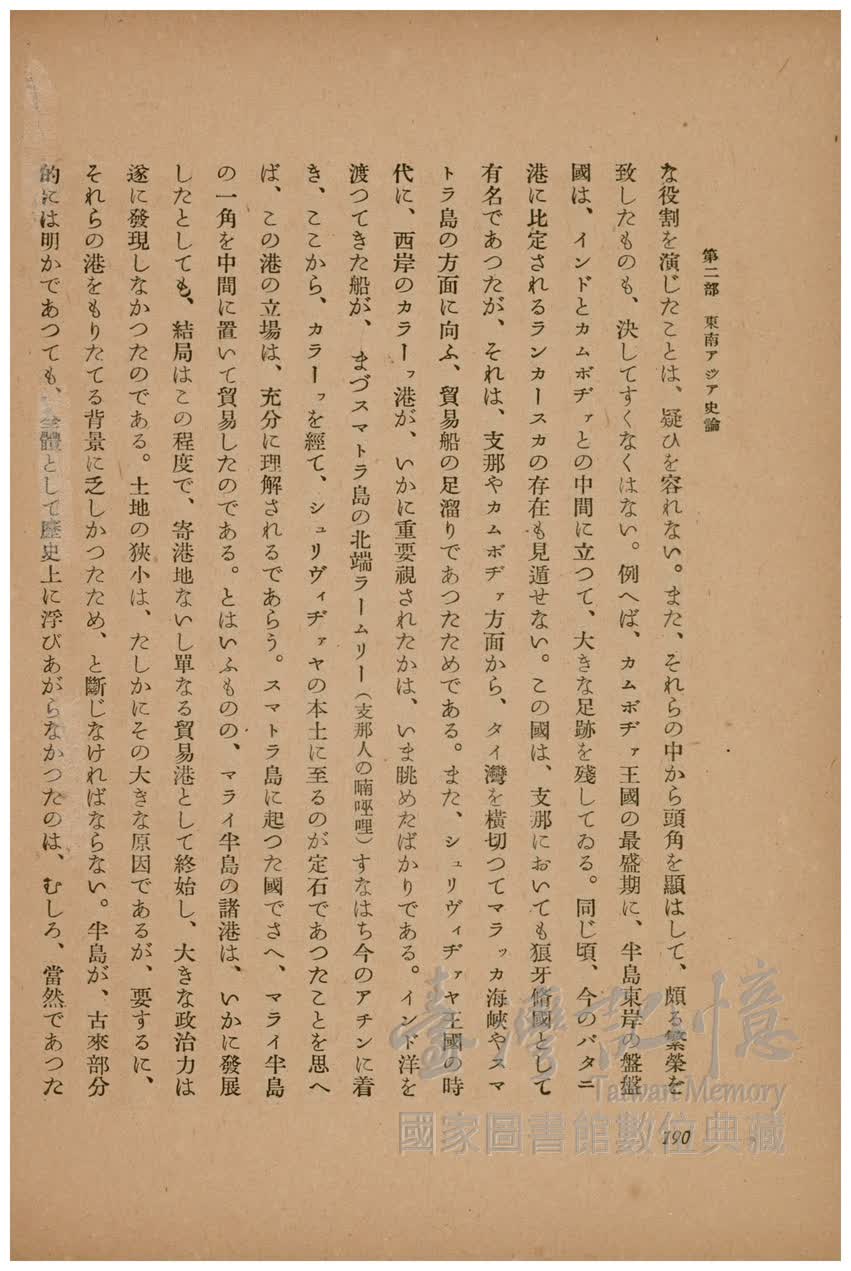 第二部 東南アジア史論
な役割を演じたことは、疑ひを容れない。また、それらの中から頭角を顯はして、頗る繁榮を
致したものも、決してすくなくはない。例へば、カムボヂァ王國の最盛期に、半島東岸の盤盤
國は、インドとカムボヂァとの中間に立つて、大きな足跡を殘してゐる。同じ頃、今のバタニ
港に比定されるランカースカの存在も見遁せない。この國は、支那においても狼牙脩國として
有名であつたが、それは、支那やカムボヂァ方面から、タイ灣を橫切つてマラッカ海峽やスマ
トラ島の方面に向ふ、貿易船の足溜りであつたためである。また、シュリヴィヂァヤ王國の時
代に、西岸のカラーフ港が、いかに重要視されたかは、いま眺めたばかりである。インド洋を
渡つてきた船が、まづスマトラ島の北端ラームリー(支那人の喃哑哩)すなはち今のアチンに着
き、ここから、カラーフを經て、シュリヴィヂァヤの本土に至るのが定石であつたことを思へ
ば、この港の立場は、充分に理解されるであらう。スマトラ島に起つた國でさへ、マライ半島
の一角を中間に置いて貿易したのである。とはいふものの、マライ半島の諸港は、いかに發展
したとしても、結局はこの程度で、寄港地ないし單なる貿易港として終始し、大きな政治力は
遂に發現しなかつたのである。土地の狹小は、たしかにその大きな原因であるが、要するに、
それらの港をもりたてる背景に乏しかつたため、と斷じなければならない。半島が、古來部分
的には明かであつても、全體として歷史上に浮びあがらなかつたのは、むしろ、當然であつた
190
臺灣記憶
Taiwan Memory
國家圖書館數位典藏